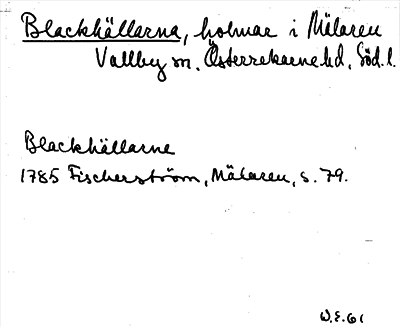 Blackhällarna, holmar i Mälaren
Vallby sn. Österrekarne hd. Söd. l.
Blackhällarne
1785 Fischerström, Mälaren, s. 79.
W.E. 61